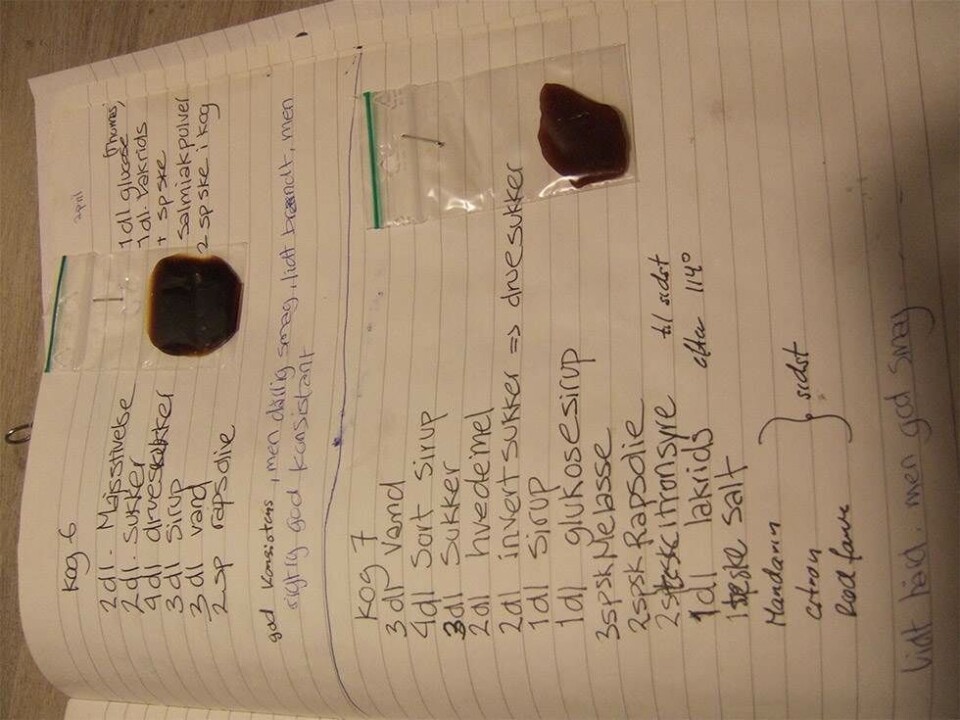 Kog 6
2 dl. Majsstivelse
2 dl. sukker
4 dl druesukker
3 dl sirup
3 dl vand
2 sp rapsolie
april
1 dl glucose
(Thomas)
1 dl. Lakrids
+ sp ske
Salmiakpulver
2 sp ske i kog
god konsistens, men dårlig smag, lidt brændt, men
rigtig good konsistant
Kog 7
3 dl Vand
4 dl Sort Sirup
3 dl Sukker
2 dl hvedemel
2 dl invertsukker => druesukker
1 dl Sirup
1 dl glukosesirup
3 spsk Melasse
2 spsk Rapsolie
2 teske citronsyre til sidst
1 dl lakrids efter 114°
1 teske salt
Mandarin
Citron } sidst
Rød farve
lidt hård, men god smag